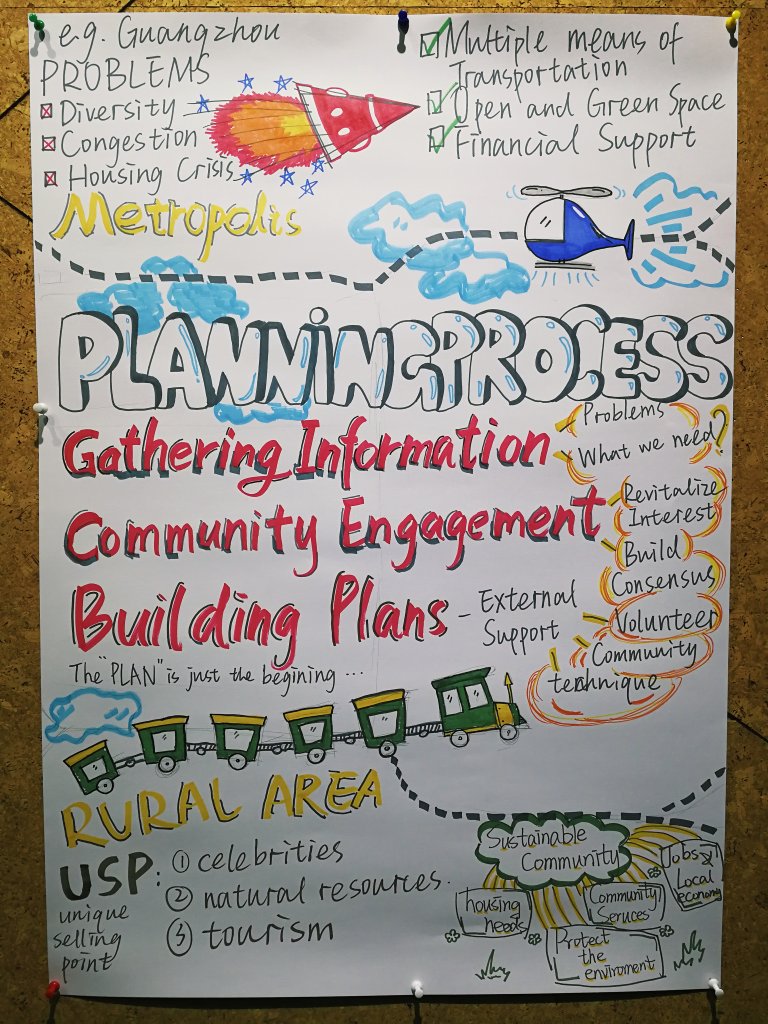 e.g. Guangzhou
PROBLEMS
Diversity
Congestion
Housing Crisis
Multiple means of
Transportation
Open and Green Space
Financial Support
Metropolis
PLANNiNGPROCESS
Gathering Information
Problems
What we need?
Community Engagement
Revitalize
Interest
Build
Consensus
Building Plans - External
Support
Volunteer
Community
technique
The "PLAN" is just the begining ...
RURAL AREA
USP:
unique
selling
point
① celebrities
② natural resources.
③ tourism
Sustainable
Community
housing
needs
Community
Services
Jobs &
Local
economy
Protect
the
enviroment